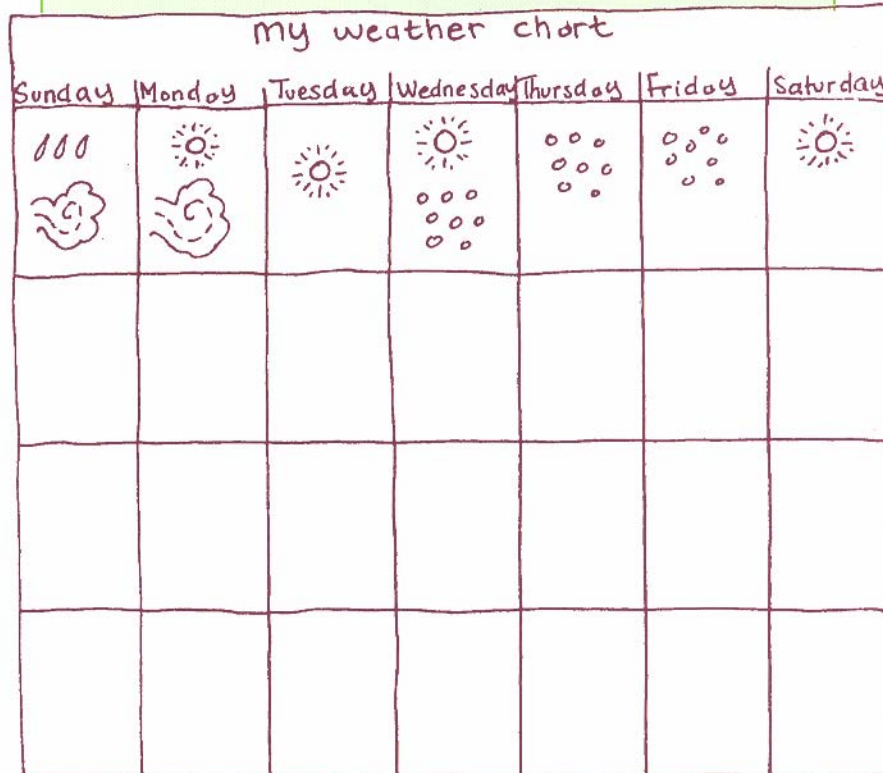 my weather chart
Sunday Monday Tuesday Wednesday Thursday Friday Saturday